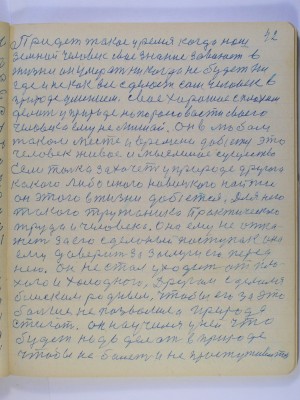 42
Придет такое время когда наш
земной человек свое знание завоюет в
жизни он умерать никогда не будет ни
где и некак все сделает сам человек в
природе умением. Свое хорошее с плохим
делит у природе
человека ему не мешай. Он в любом
таком месте и времени добьется это
человек живое и мыслемое существо
чем только захочет у природе другого
какого либо иного навыкого
он этого в жизни добьется. Для него
такого труженика Практического
труда и человека. Она ему не отка-
жет за его сделаное поступок она
ему доверит за заслугу его перед
нею. Он не стал уходить от пло-
хого и холодного, Врагом сделался
близким родным, чтобы его за это
больше не позволила Природа
стегат. он научился у ней что
будет надо делат в природе
чтобы не болет и не простуживатся